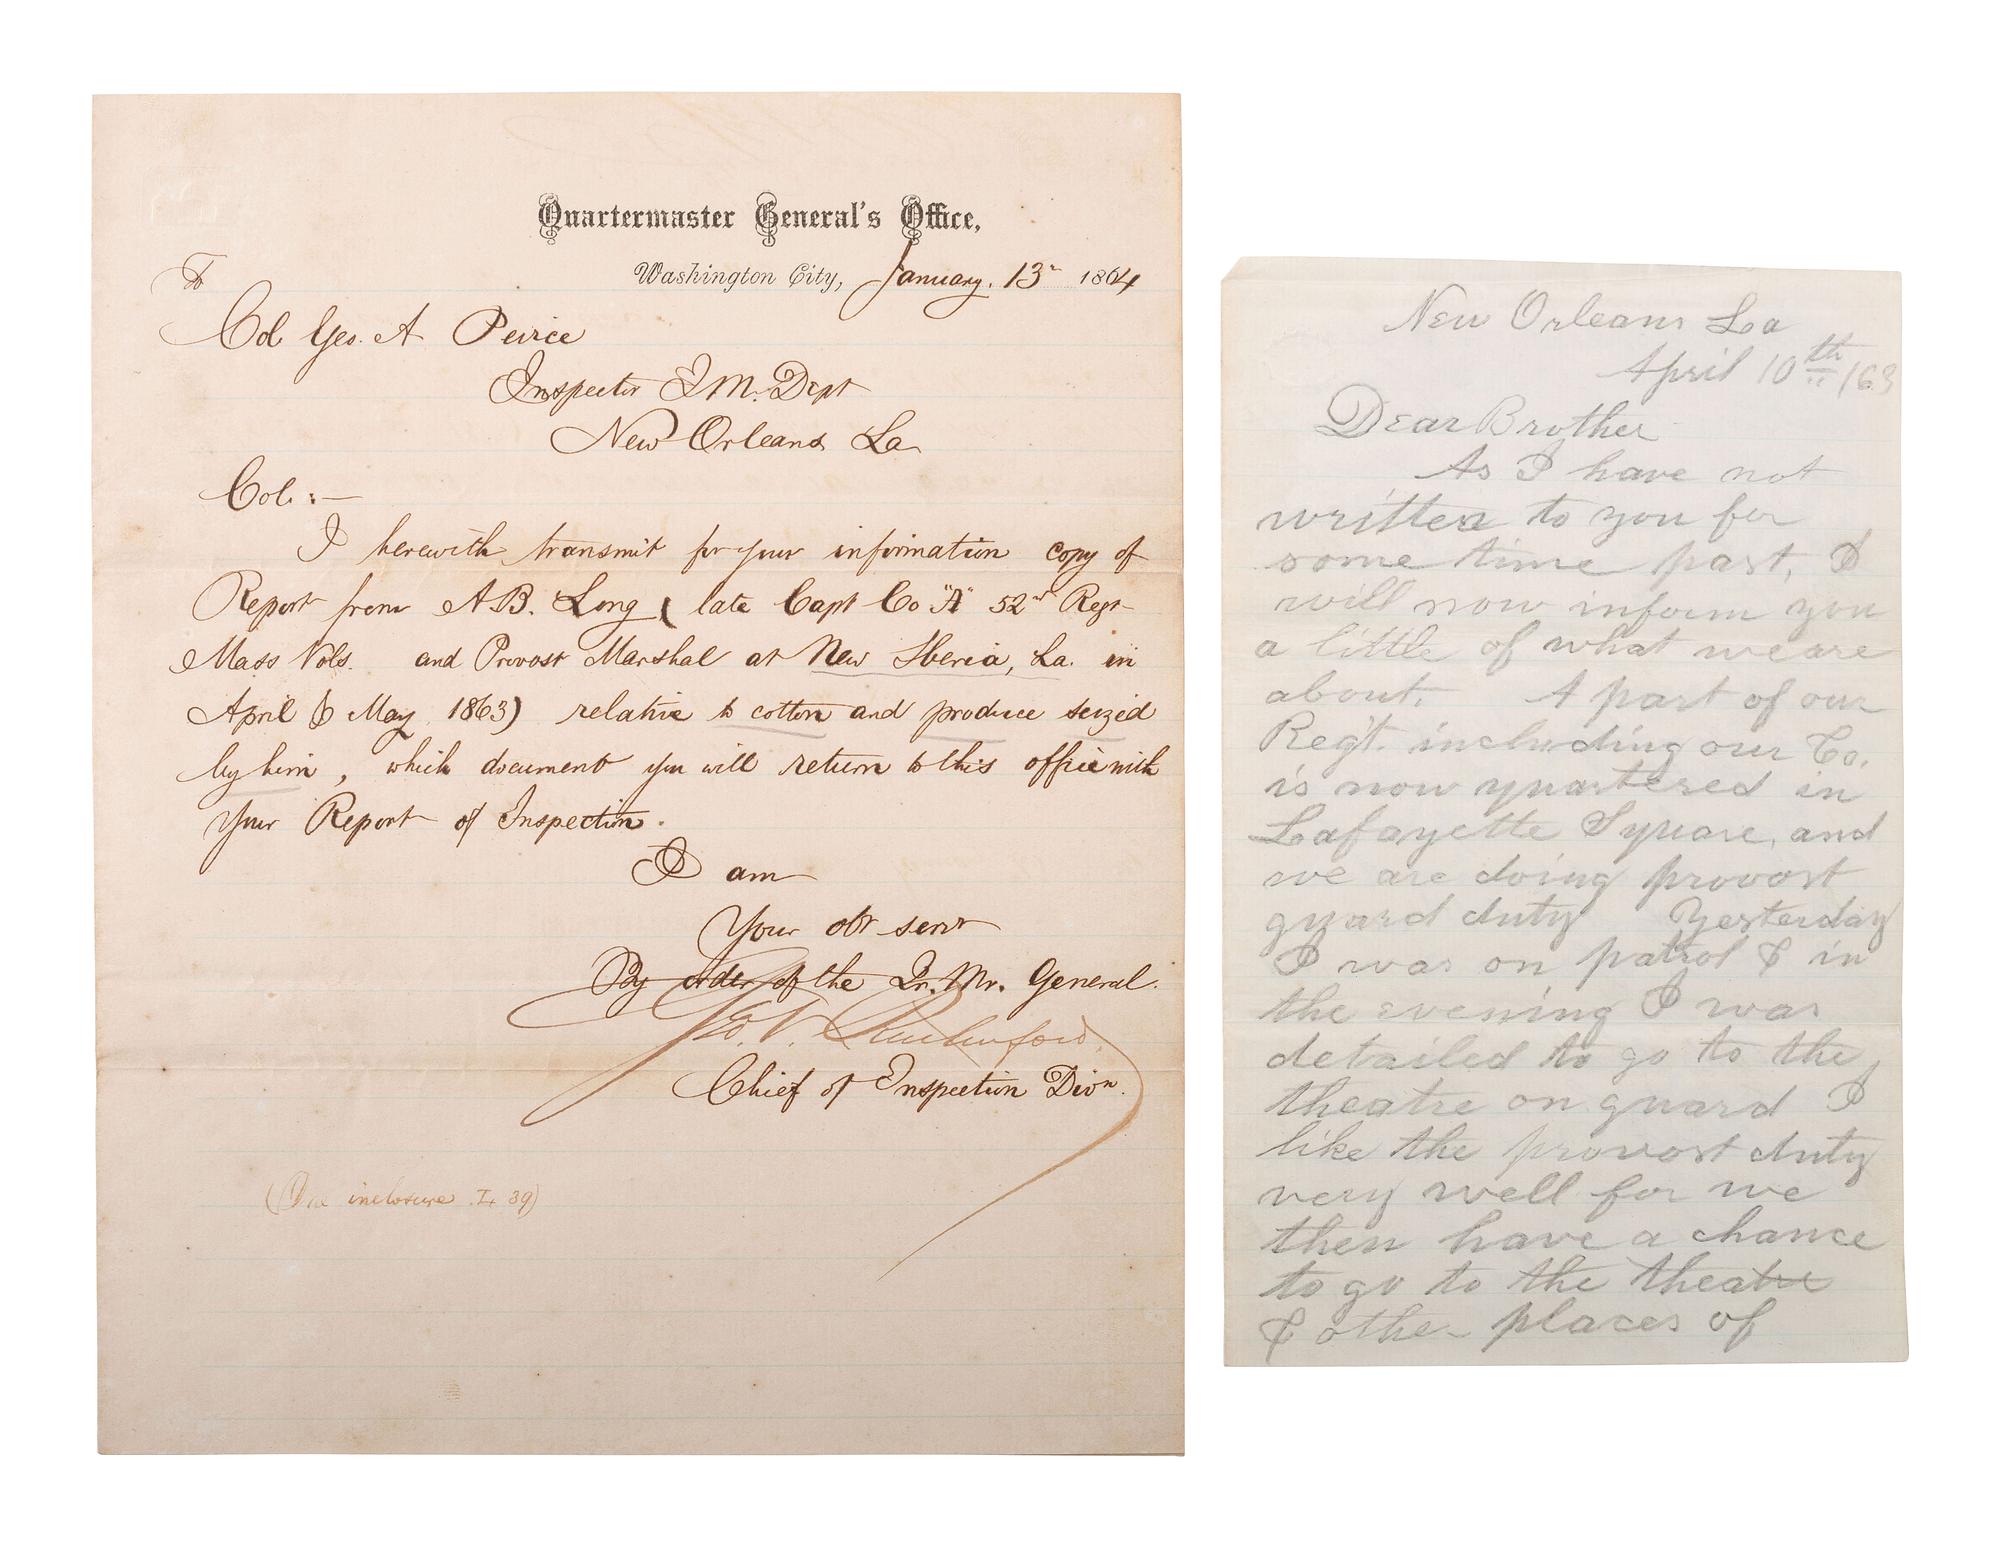 Quartermaster General's Office,
Washington City, January. 13" 1864
To
Col Geo. A Peirce
Inspector Q M. Dept
New Orleans La
Col. :—
I herewith transmit for your information copy of
Report from A. B. Long ( late Capt Co "A" 52" Regt
Mass Vols. and Provost Marshal at New Iberia, La. in
April & May 1863) relative to cotton and produce seized
by him, which document you will return to this office with
your Report of Inspection.
I am
Your obt servt
By order of the Qr. Mr. General.
Geo. V. Rutherford,
Chief of Inspection Divn.
( inclosure . 39)
New Orleans La
April 10th /63
Dear Brother
As I have not
written to you for
some time past, I
will now inform you
a little of what we are
about. A part of our
Regt. including our Co.
is now quartered in
Lafayette Square, and
we are doing provost
guard duty Yesterday
I was on patrol & in
the evening I was
detailed to go to the
theatre on guard I
like the provost duty
very well for we
then have a chance
to go to the theatre
& other places of